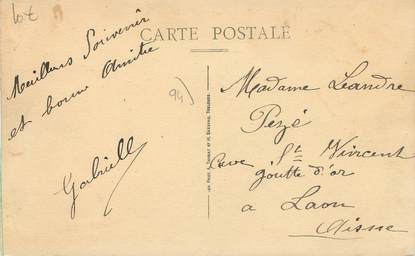 lot
CARTE POSTALE
Meilleurs Souvenir
et bonne Amitié
Gabrielle
94)
Madame Leandre
Pezé
Cave St Vincent
goutte d'or
a Laon
Aisne